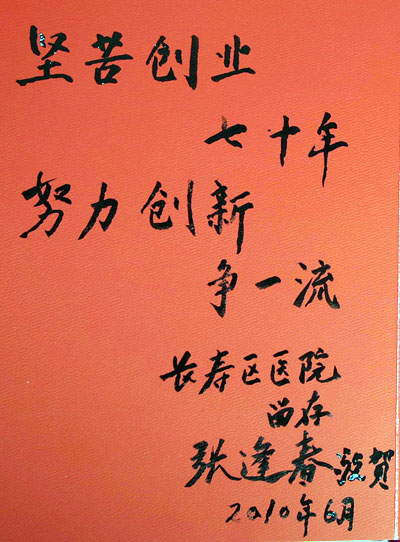 坚苦创业
七十年
努力创新
争一流
长寿区医院
留存
张逢春 敬贺
2010年6月